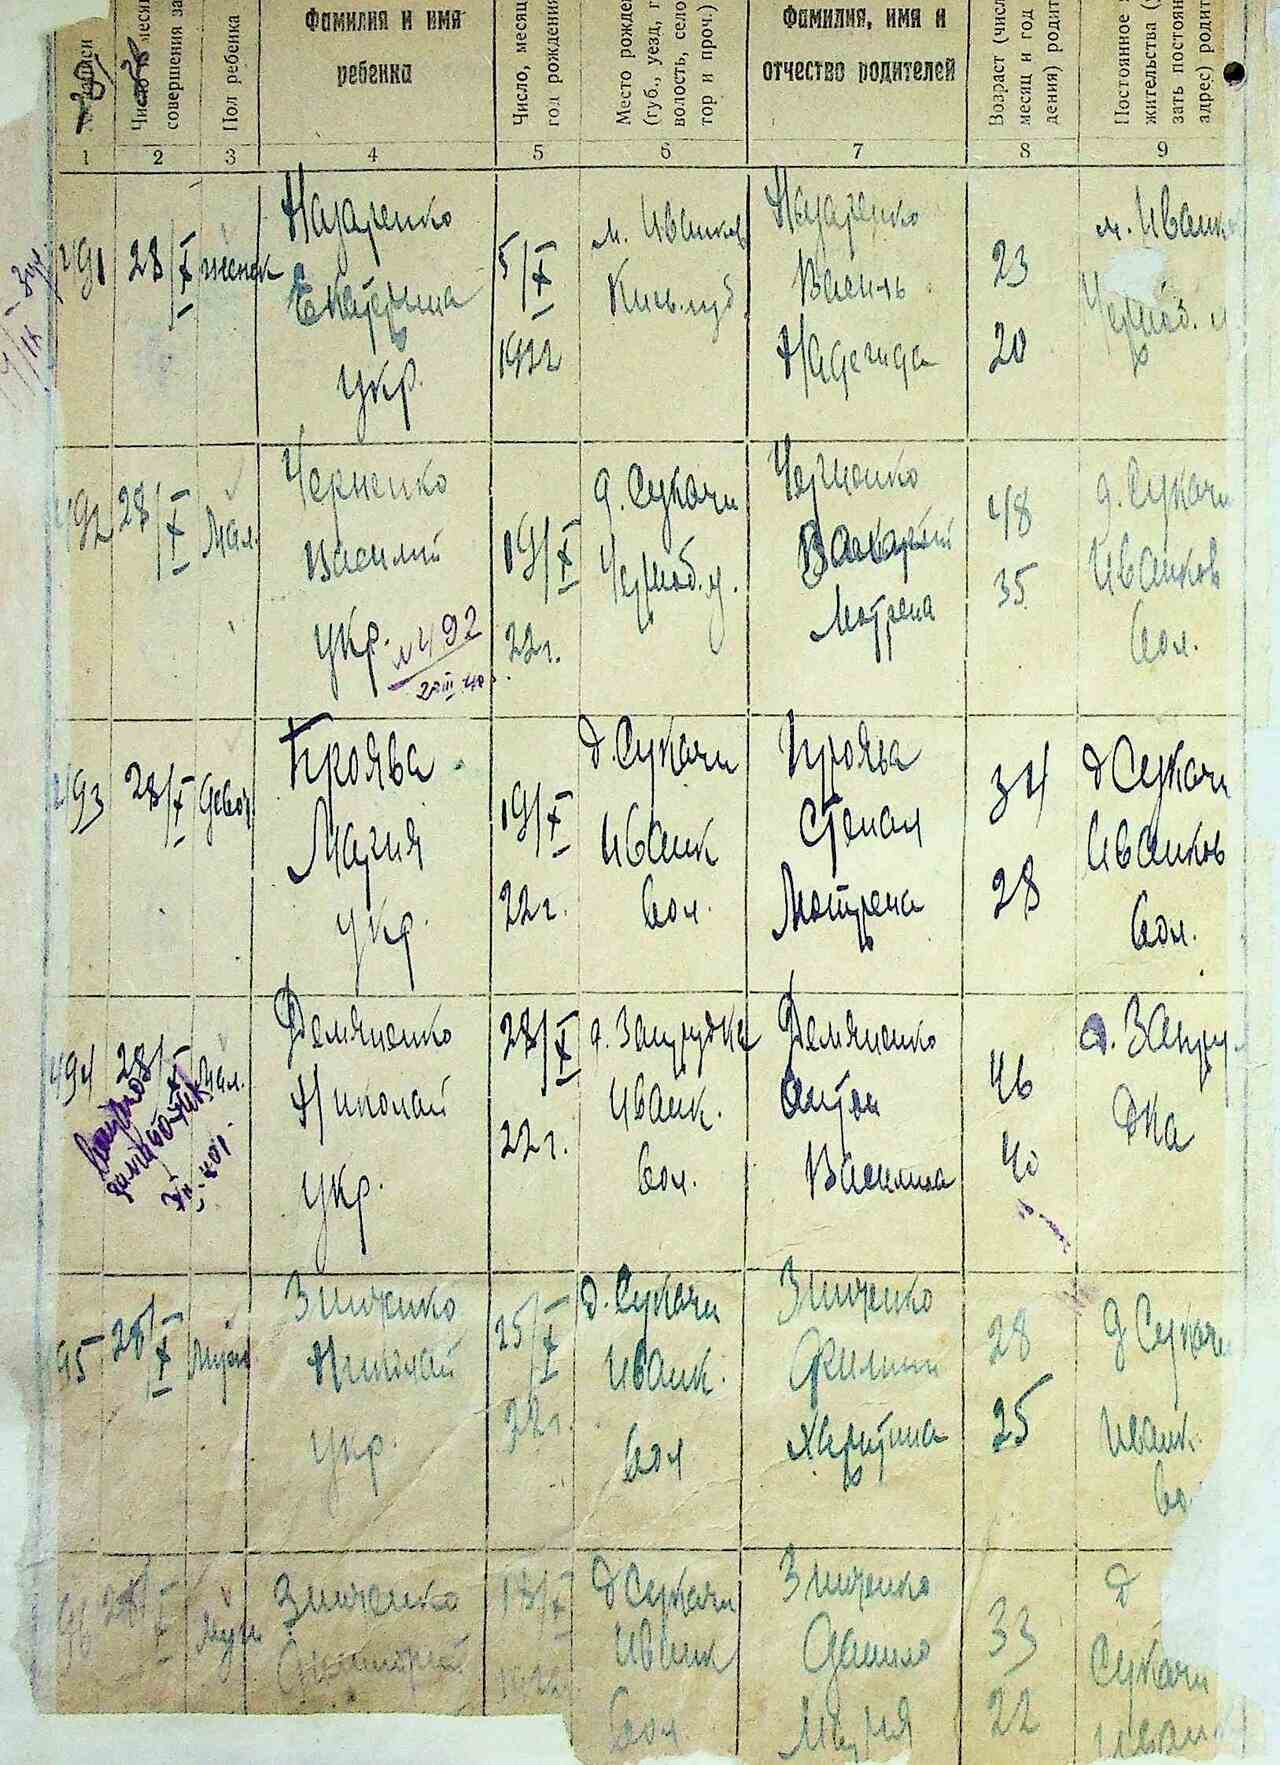 № записи
Число, меся
совершения за
Пол ребенка
Фамилия и имя
ребенка
Число, месяц
год рождения
Место рожден
(губ., уезд, г
волость, село
тор и проч.)
Фамилия, имя и
отчество родителей
Возраст (чис
месяц и год
дения) родит
Постоянное
жительства (
зать постоян
адрес) родит
1 2 3 4 5 6 7 8 9
491
28/X
женск
Назаренко
Екатерина
укр.
5/X
1922
м. Иванков
Киев. губ.
Назаренко
Василь
Надежда
23
20
м. Иванк
Черноб. у
492
28/X
Мал.
Черненко
Василий
укр.
№ 492
19/X
22 г.
д. Сукачи
Черноб. у.
Черненко
Захарий
Мотрена
48
35
д. Сукачи
Иванков
вол.
493
28/X
Девоч
Проява
Мария
укр.
19/X
22 г.
д. Сукачи
Иванк
вол.
Проява
Степан
Мотрена
34
28
д Сукачи
Иванков
вол.
494
28/X
Мал.
Демяненко
Николай
укр.
28/X
22 г.
д. Запрудка
Иванк.
вол.
Демяненко
Антон
Василина
46
40
д. Запру
дка
95
28/X
Муж
Зинченко
Николай
укр.
25/X
22 г.
д. Сукачи
Иванк.
вол
Зинченко
Филипп
Харитина
28
25
д Сукачи
Иванк.
во
96
28/X
Муж
Зинченко
13/X
1922
д Сукачи
Иванк
вол.
Зинченко
Данило
Мария
33
22
д
Сукачи
Иванк